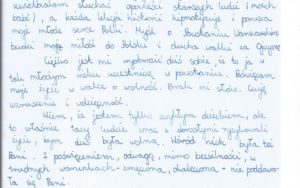 uwielbiałam słuchać opowieści starszych ludzi (moich
babć), a każda lekcja historii hipnotyzuje i porusza
moje młode serce Polki. Myśl o Powstaniu Warszawskim
budzi moją miłość do Polski i ducha walki za Ojczyznę
Ciężko jest mi wyobrazić dziś sobie, iż to ja w
tak młodym wieku uczestniczę w powstaniu. Poświęcam
moje życie w walce o wolność. Brak mi słów. Czuję
wzruszenie i wdzięczność.
Wiem, że jestem tylko zwykłym dzieckiem, ale
to właśnie tacy ludzie wraz z dorosłymi ryzykowali
życie, bym dziś była wolna. Wśród nich była też
Pani i poświęceniem, odwagą, mimo bezsilności, w
trudnych warunkach zmęczona, okaleczona - nie poddawa-
ła się Pani.